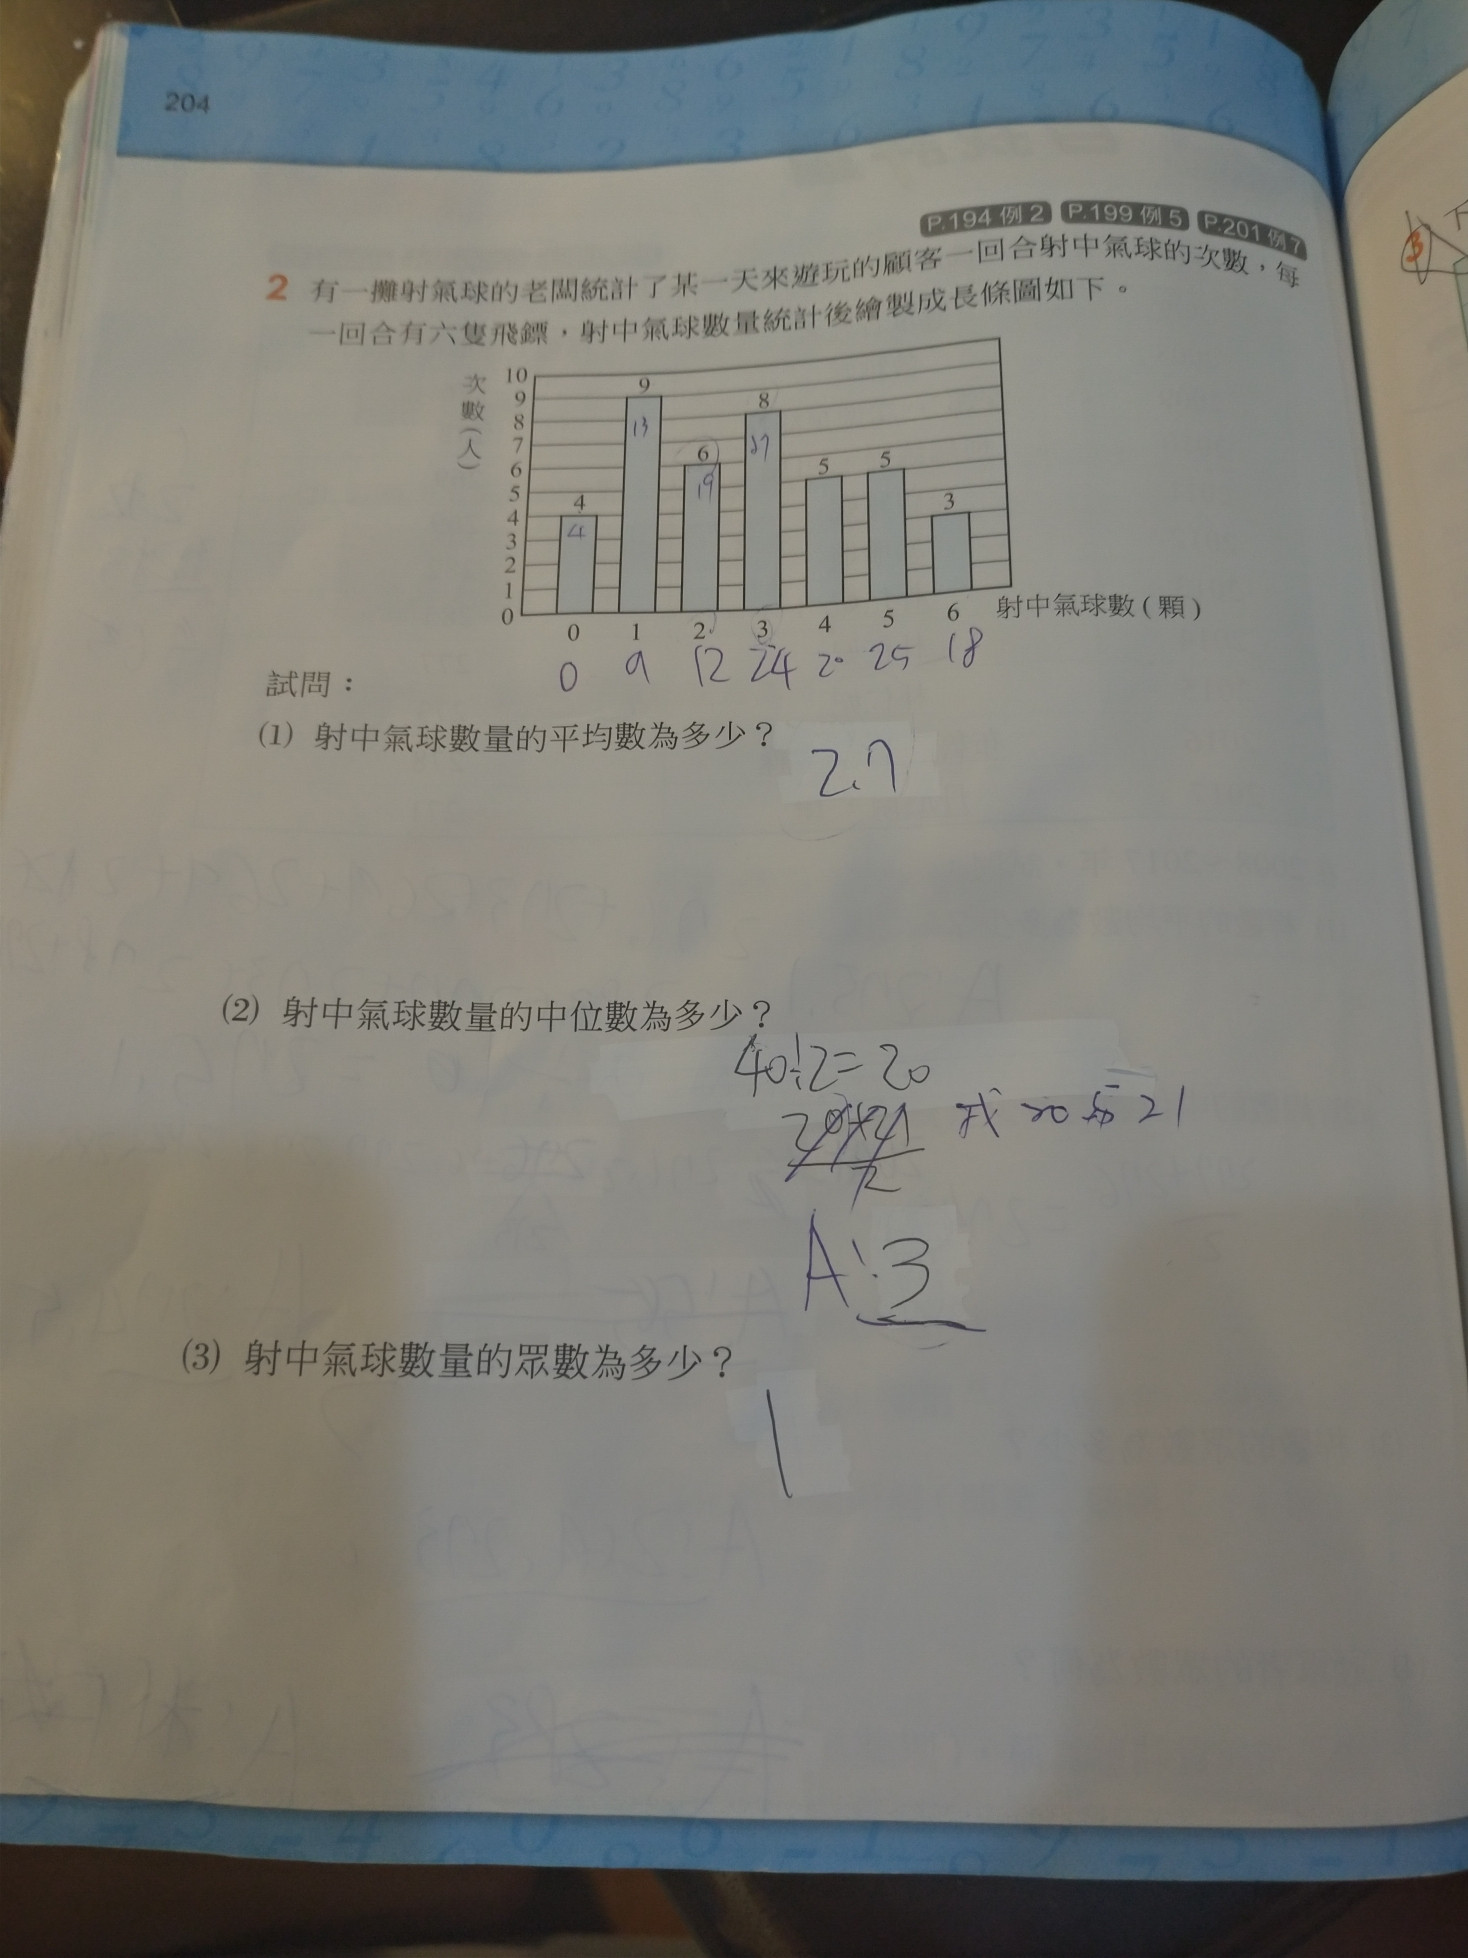 204
P.194 例2 P.199 例5 P.201 例7
2 有一攤射氣球的老闆統計了某一天來遊玩的顧客一回合射中氣球的次數，每
一回合有六隻飛鏢，射中氣球數量統計後繪製成長條圖如下。
次數(人)
10
9
8
7
6
5
4
3
2
1
0
4 9 6 8 5 5 3
4 13 19 27
0 1 2 3 4 5 6 射中氣球數(顆)
0 9 12 24 20 25 18
試問：
(1) 射中氣球數量的平均數為多少？
2.7
(2) 射中氣球數量的中位數為多少？
40÷2=20
20+21 找20與21
2
A:3
(3) 射中氣球數量的眾數為多少？
1